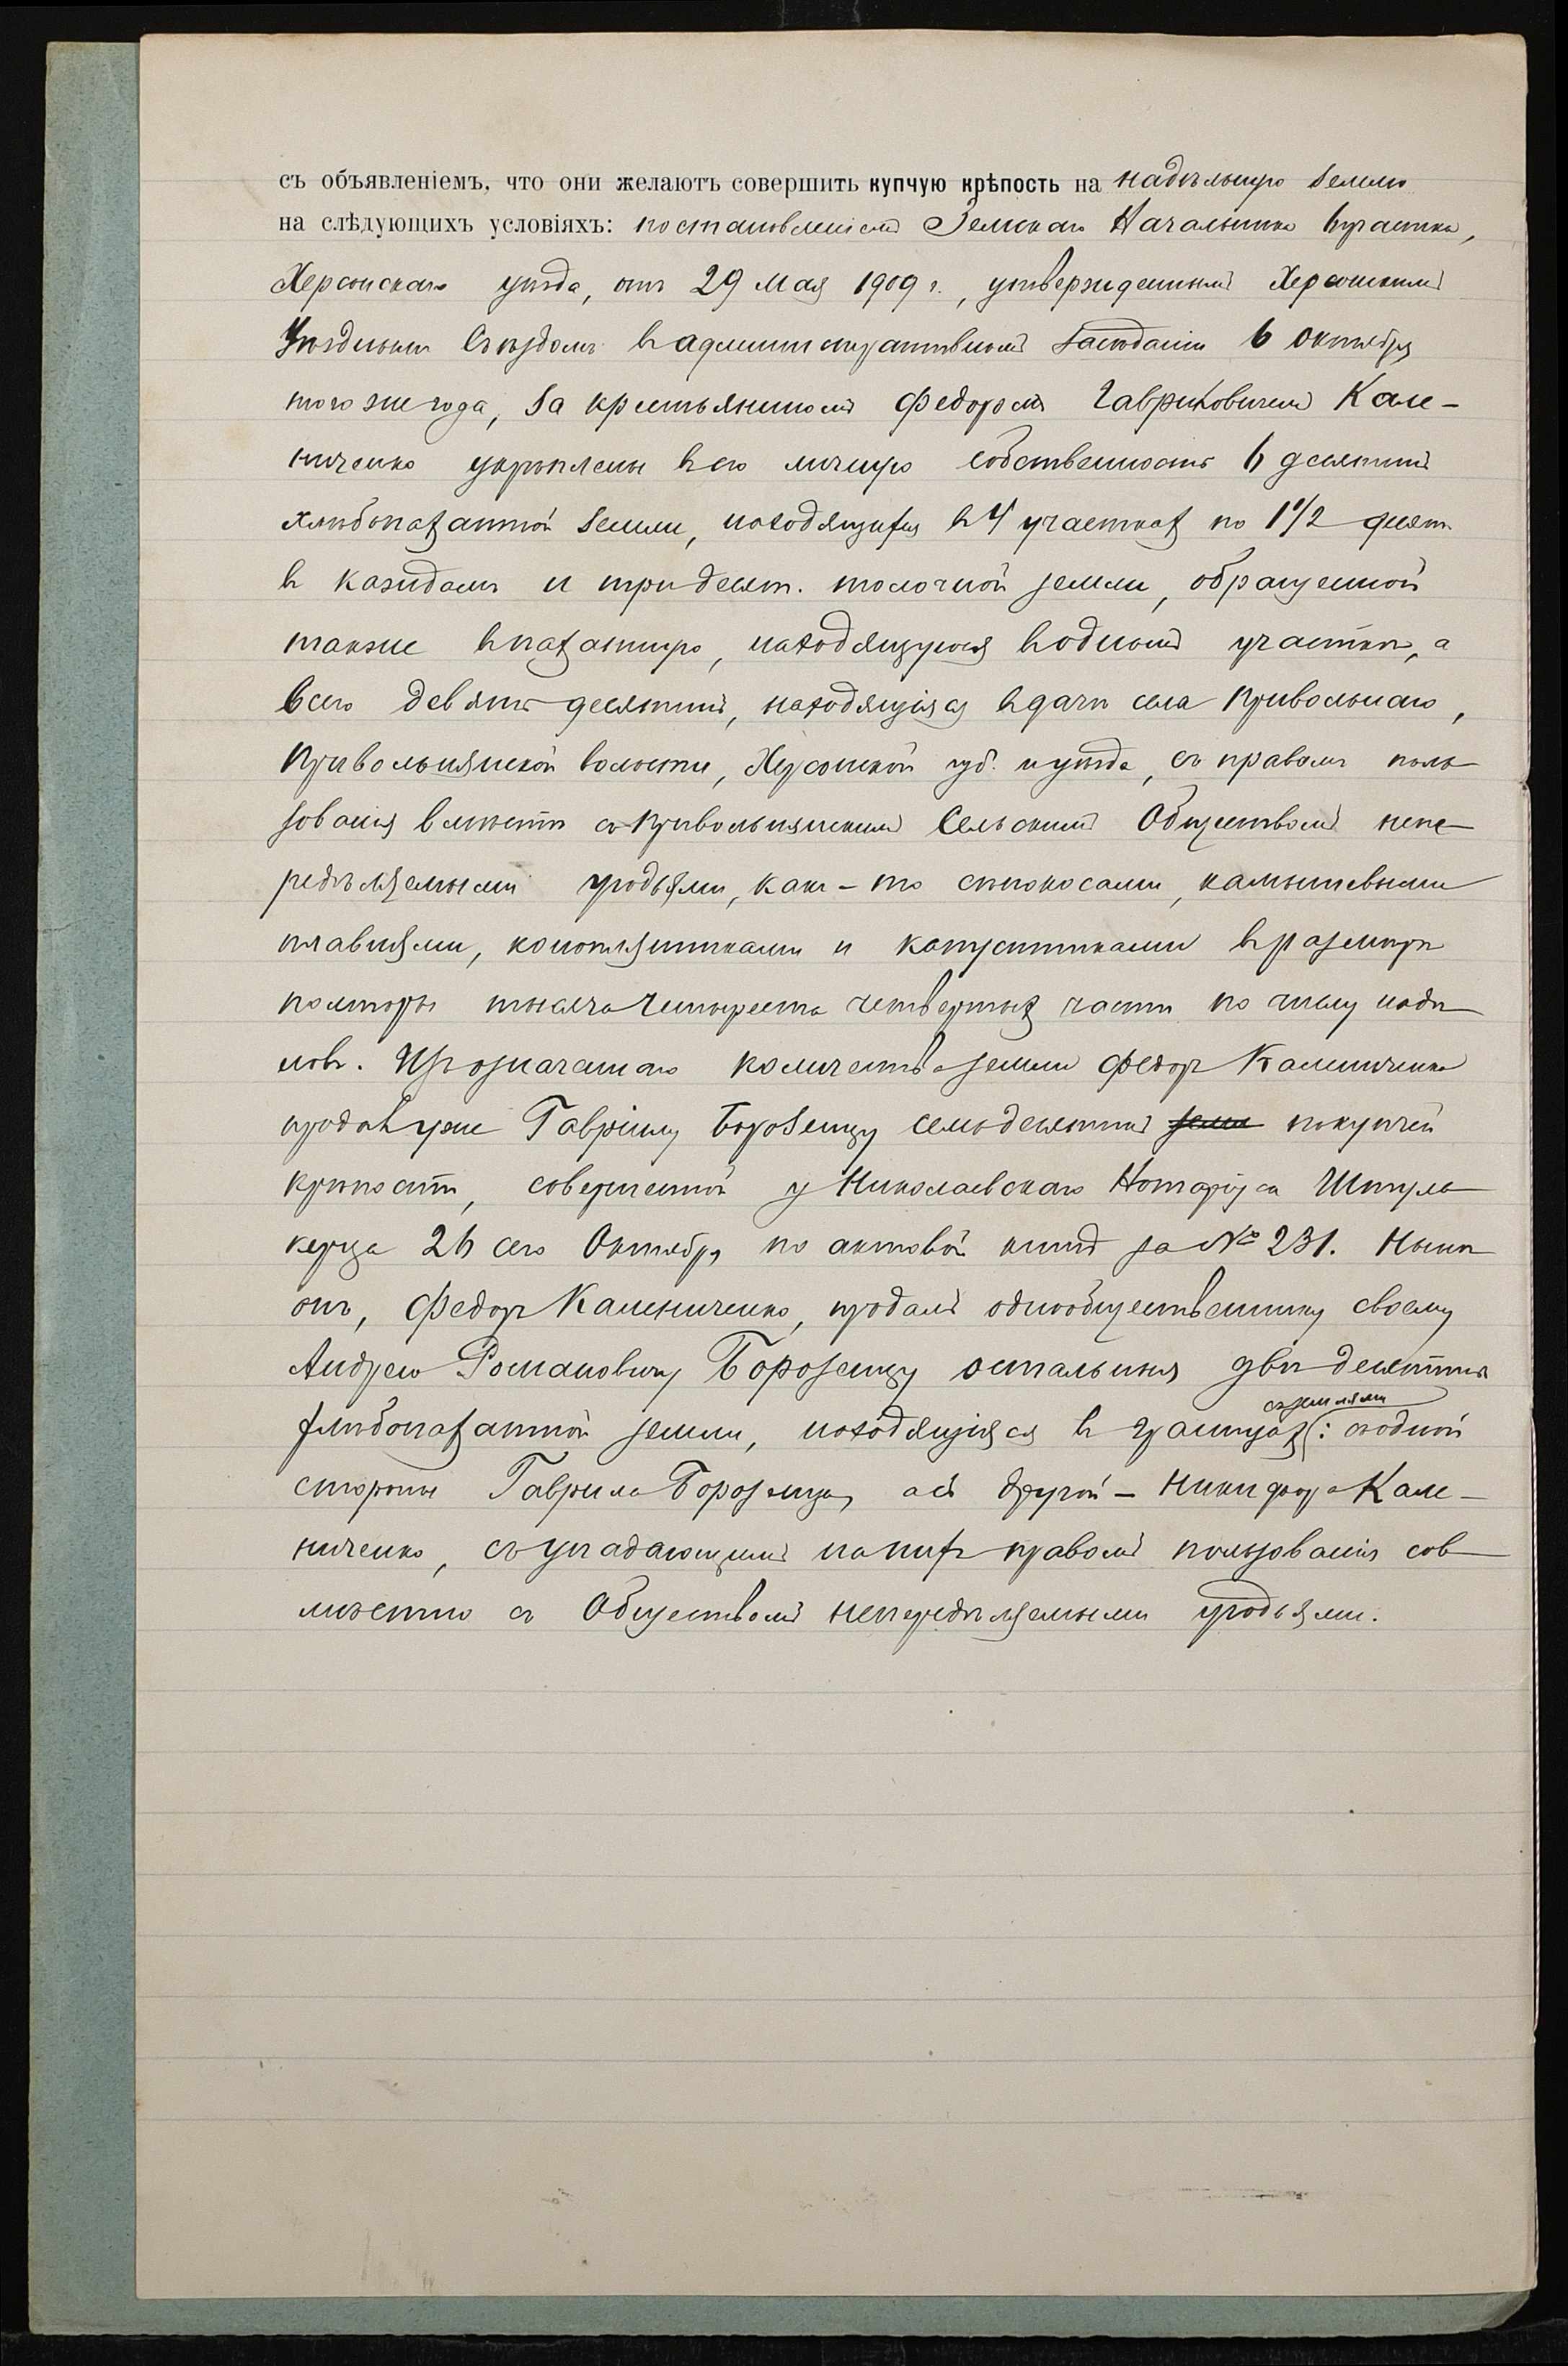 съ объявленіемъ, что они желаютъ совершить купчую крѣпость на надѣльную землю
на слѣдующихъ условіяхъ: постановленіемъ Земскаго Начальника 6 участка,
Херсонскаго уѣзда, отъ 29 Мая 1909 г., утвержденнымъ Херсонскимъ
Уѣзднымъ Съѣздомъ въ административномъ засѣданіи 6 Октября
того же года, за крестьяниномъ Федоромъ Гавриловичемъ Кале-
ниченко укрѣплены въ его личную собственность 6 десятинъ
хлѣбопахатной земли, находящихся въ 4 участкахъ по 1 1/2 десят.
въ каждомъ и три десят. толочной земли, обращенной
также въ пахатную, находящуюся въ одномъ участкѣ, а
всего девять десятинъ, находящіяся въ дачѣ села Привольнаго,
Привольнянской волости, Херсонской губ. и уѣзда, съ правомъ поль-
зованія вмѣстѣ съ Привольнянскимъ Сельскимъ Обществомъ непе-
редѣляемыми угодьями, какъ-то сѣнокосами, камышевыми
плавнями, коноплянниками и капустниками въ размѣрѣ
полторы тысяча четыреста четвертыхъ части по числу надѣ-
ловъ. Изъ означеннаго количества земли Федоръ Калениченко
продалъ уже Гавріилу Борозенцу семь десятинъ земли по купчей
крѣпости, совершенной у Николаевскаго Нотаріуса Штуль-
керца 26 сего Октября по актовой книгѣ за № 231. Нынѣ
онъ, Федоръ Калениченко, продалъ однообщественнику своему
Андрею Романовичу Борозенцу остальныя двѣ десятины
хлѣбопахатной земли, находящіяся въ границахъ: съ одной
съ землями
стороны Гаврила Борозенца, а съ другой - Никифора Кале-
ниченко, съ упадающимъ на нихъ правомъ пользованія сов-
мѣстно съ Обществомъ непередѣляемыми угодьями.